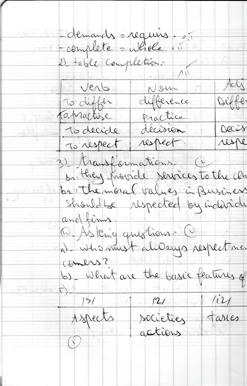 - demands = requires.
- complete = whole
2) table completion.
Verb Noun Adj
To differ difference Differ
To practise Practice
To decide decision Decis
To respect respect respe
3) transformations.
b1. they provide services to the con
b2. The moral values in Business
should be respected by individu
and firms.
asking questions.
a)- who must always respect
comers?
b)- what are the basic features of
/s/ /z/ /iz/
Aspects societies taxies
actions